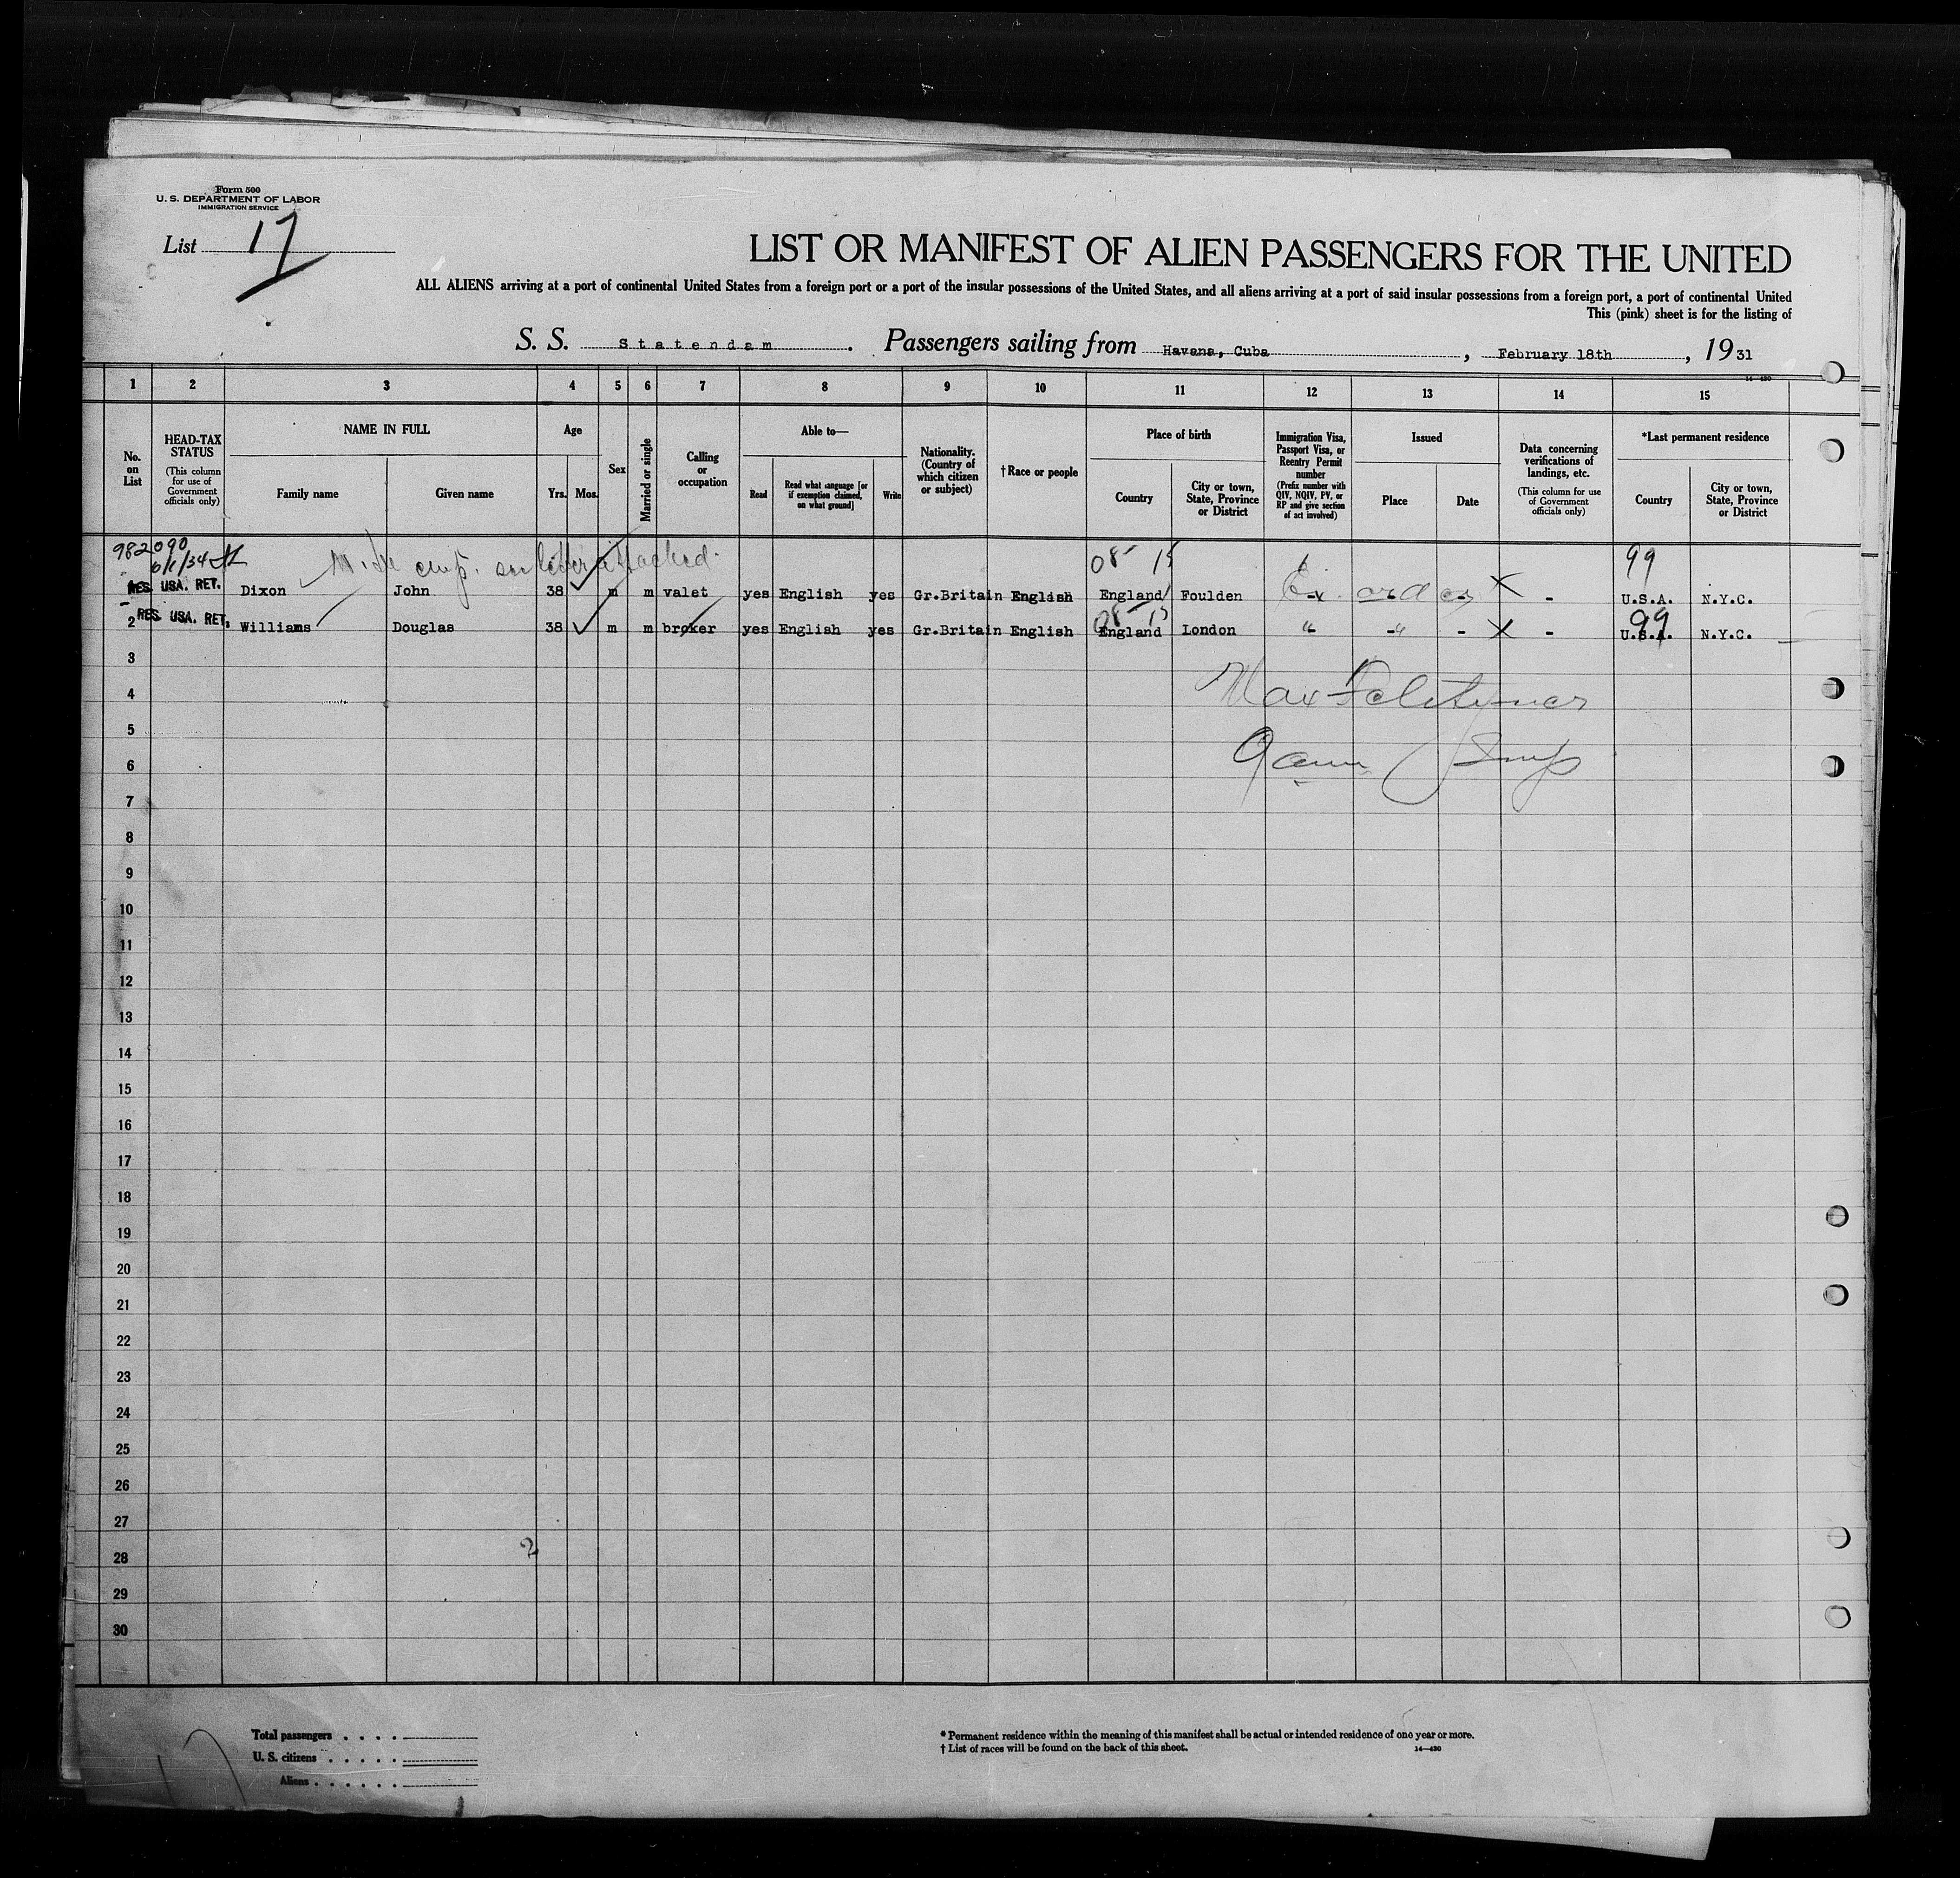 Form 500
U. S. DEPARTMENT OF LABOR
IMMIGRATION SERVICE
List 17
LIST OR MANIFEST OF ALIEN PASSENGERS FOR THE UNITED
ALL ALIENS arriving at a port of continental United States from a foreign port or a port of the insular possessions of the United States, and all aliens arriving at a port of said insular possessions from a foreign port, a port of continental United
This (pink) sheet is for the listing of
S. S. Statendam . Passengers sailing from Havana, Cuba , February 18th , 19 31
14—430
1 2 3 4 5 6 7 8 9 10 11 12 13 14 15
No. on List
HEAD-TAX STATUS
(This column for use of Government officials only)
NAME IN FULL
Family name
Given name
Age
Yrs. Mos.
Sex
Married or single
Calling or occupation
Able to—
Read
Read what language [or if exemption claimed, on what ground]
Write
Nationality. (Country of which citizen or subject)
†Race or people
Place of birth
Country
City or town, State, Province or District
Immigration Visa, Passport Visa, or Reentry Permit number
(Prefix number with QIV, NQIV, PV, or RP and give section of act involved)
Issued
Place
Date
Data concerning verifications of landings, etc.
(This column for use of Government officials only)
*Last permanent residence
Country
City or town, State, Province or District
982090
6/1/34
letter attached
08 15
99
RES. USA. RET. Dixon John 38 m m valet yes English yes Gr.Britain English England Foulden - - - - U.S.A. N.Y.C.
08 15
99
2 RES. USA. RET. Williams Douglas 38 m m broker yes English yes Gr.Britain English England London " " - - U.S.A. N.Y.C.
3
4
Max
5
6
Insp
7
8
9
10
11
12
13
14
15
16
17
18
19
20
21
22
23
24
25
26
27
28
2
29
30
Total passengers . . . .
U. S. citizens . . . . .
Aliens . . . . . .
* Permanent residence within the meaning of this manifest shall be actual or intended residence of one year or more.
† List of races will be found on the back of this sheet.
14—430